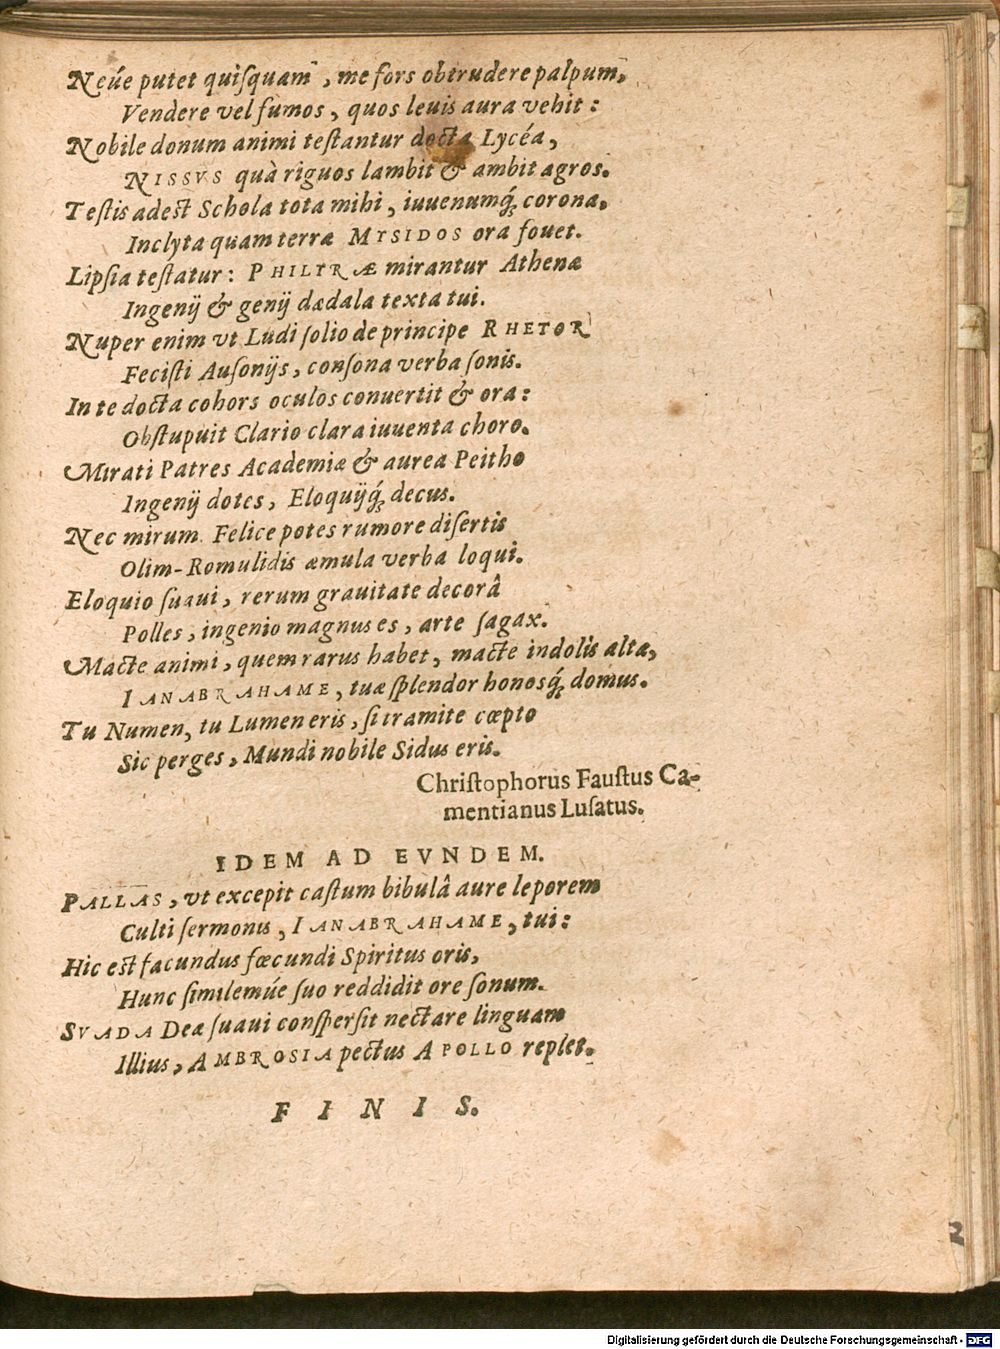 Neúe putet quiſquam, me fors obtrudere palpum,
Vendere vel fumos, quos leuis aura vehit:
Nobile donum animi teſtantur docta Lycéa,
NISSVS quà riguos lambit & ambit agros.
Teſtis adeſt Schola tota mihi, iuuenumq́; corona,
Inclyta quam terræ MYSIDOS ora fouet.
Lipſia teſtatur: PHILYRÆ mirantur Athenæ
Ingenij & genij dædala texta tui.
Nuper enim vt Ludi ſolio de principe RHETOR
Feciſti Auſonijs, conſona verba ſonis.
In te docta cohors oculos conuertit & ora:
Obſtupuit Clario clara iuuenta choro.
Mirati Patres Academiæ & aurea Peitho
Ingenij dotes, Eloquijq́; decus.
Nec mirum. Felice potes rumore diſertis
Olim-Romulidis æmula verba loqui.
Eloquio ſuaui, rerum grauitate decorâ
Polles, ingenio magnus es, arte ſagax.
Macte animi, quem rarus habet, macte indolis altæ,
IANABRAHAME, tuæ ſplendor honosq́; domus.
Tu Numen, tu Lumen eris, ſi tramite cœpto
Sic perges, Mundi nobile Sidus eris.
Chriſtophorus Fauſtus Ca-
mentianus Luſatus.
IDEM AD EVNDEM.
PALLAS, vt excepit caſtum bibulâ aure leporem
Culti ſermonis, IANABRAHAME, tui:
Hic eſt facundus fœcundi Spiritus oris,
Hunc ſimilemúe ſuo reddidit ore ſonum.
SVADA Dea ſuaui conſperſit nectare linguam
Illius, AMBROSIA pectus APOLLO replet.
FINIS.
2
Digitalisierung gefördert durch die Deutsche Forschungsgemeinschaft - DFG